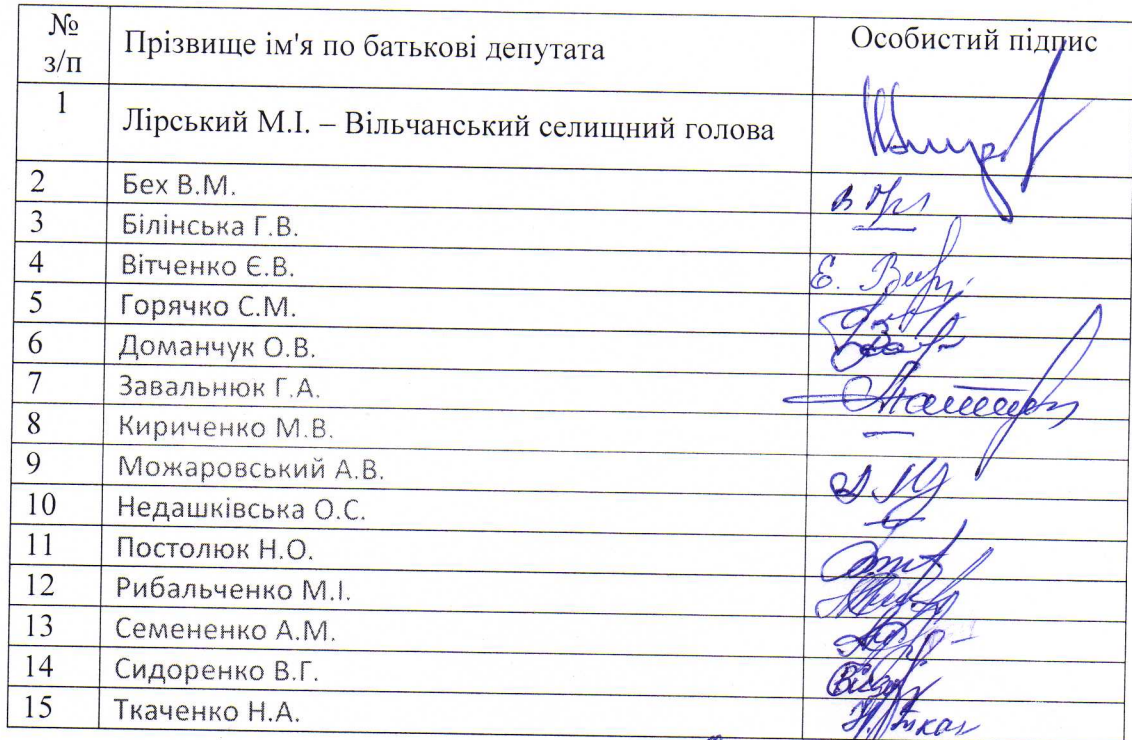 № з/п Прізвище ім'я по батькові депутата Особистий підпис
1 Лірський М.І. – Вільчанський селищний голова
2 Бех В.М.
3 Білінська Г.В.
4 Вітченко Є.В.
5 Горячко С.М.
6 Доманчук О.В.
7 Завальнюк Г.А.
8 Кириченко М.В. —
9 Можаровський А.В.
10 Недашківська О.С.
11 Постолюк Н.О.
12 Рибальченко М.І.
13 Семененко А.М.
14 Сидоренко В.Г.
15 Ткаченко Н.А.